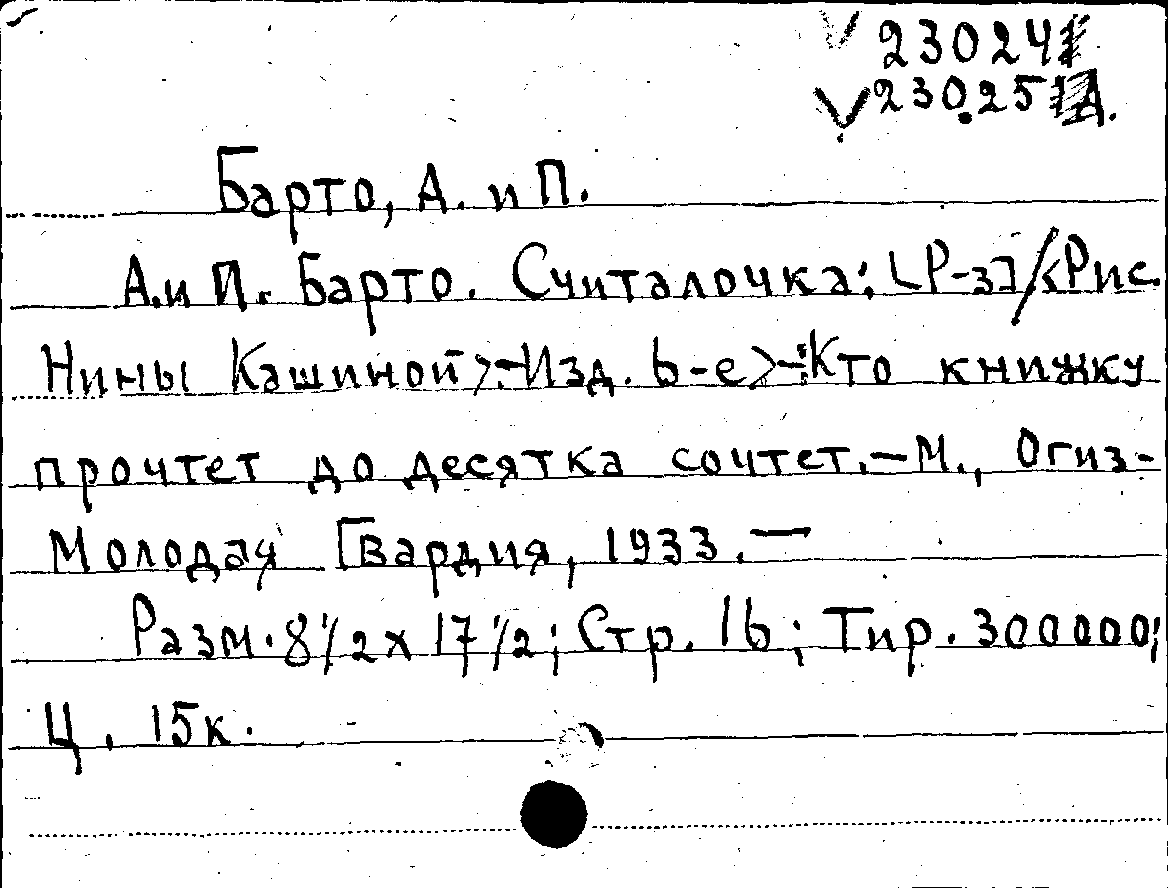 23024
23025 А.
Барто, А. и П.
А. и П. Барто. Считалочка: [Р-з]/<Рис.
Нины Кашиной>.-Изд. 6-е>-:Кто книжку
прочтет до десятка сочтет.-М., Огиз-
Молодая Гвардия, 1933.-
Разм. 8 1/2 х 17 1/2; Стр. 16; Тир. 300000;
Ц. 15к.